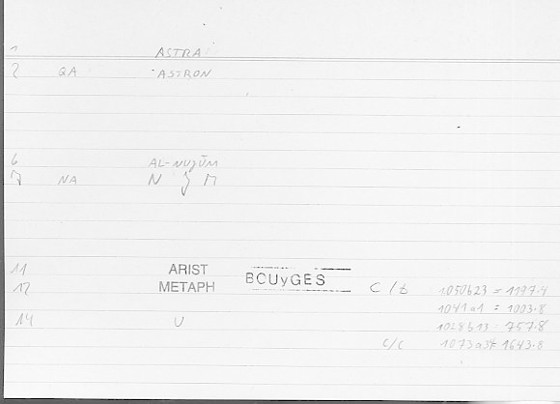 1 ASTRA
2 QA ASTRON
6 AL-NUJŪM
7 NA N J M
11 ARIST
12 METAPH BOUyGES C/t 1050b23 = 1197.4
1041a1 = 1003.8
14 U 1028b13 = 757.8
C/C 1073a35 = 1643.8